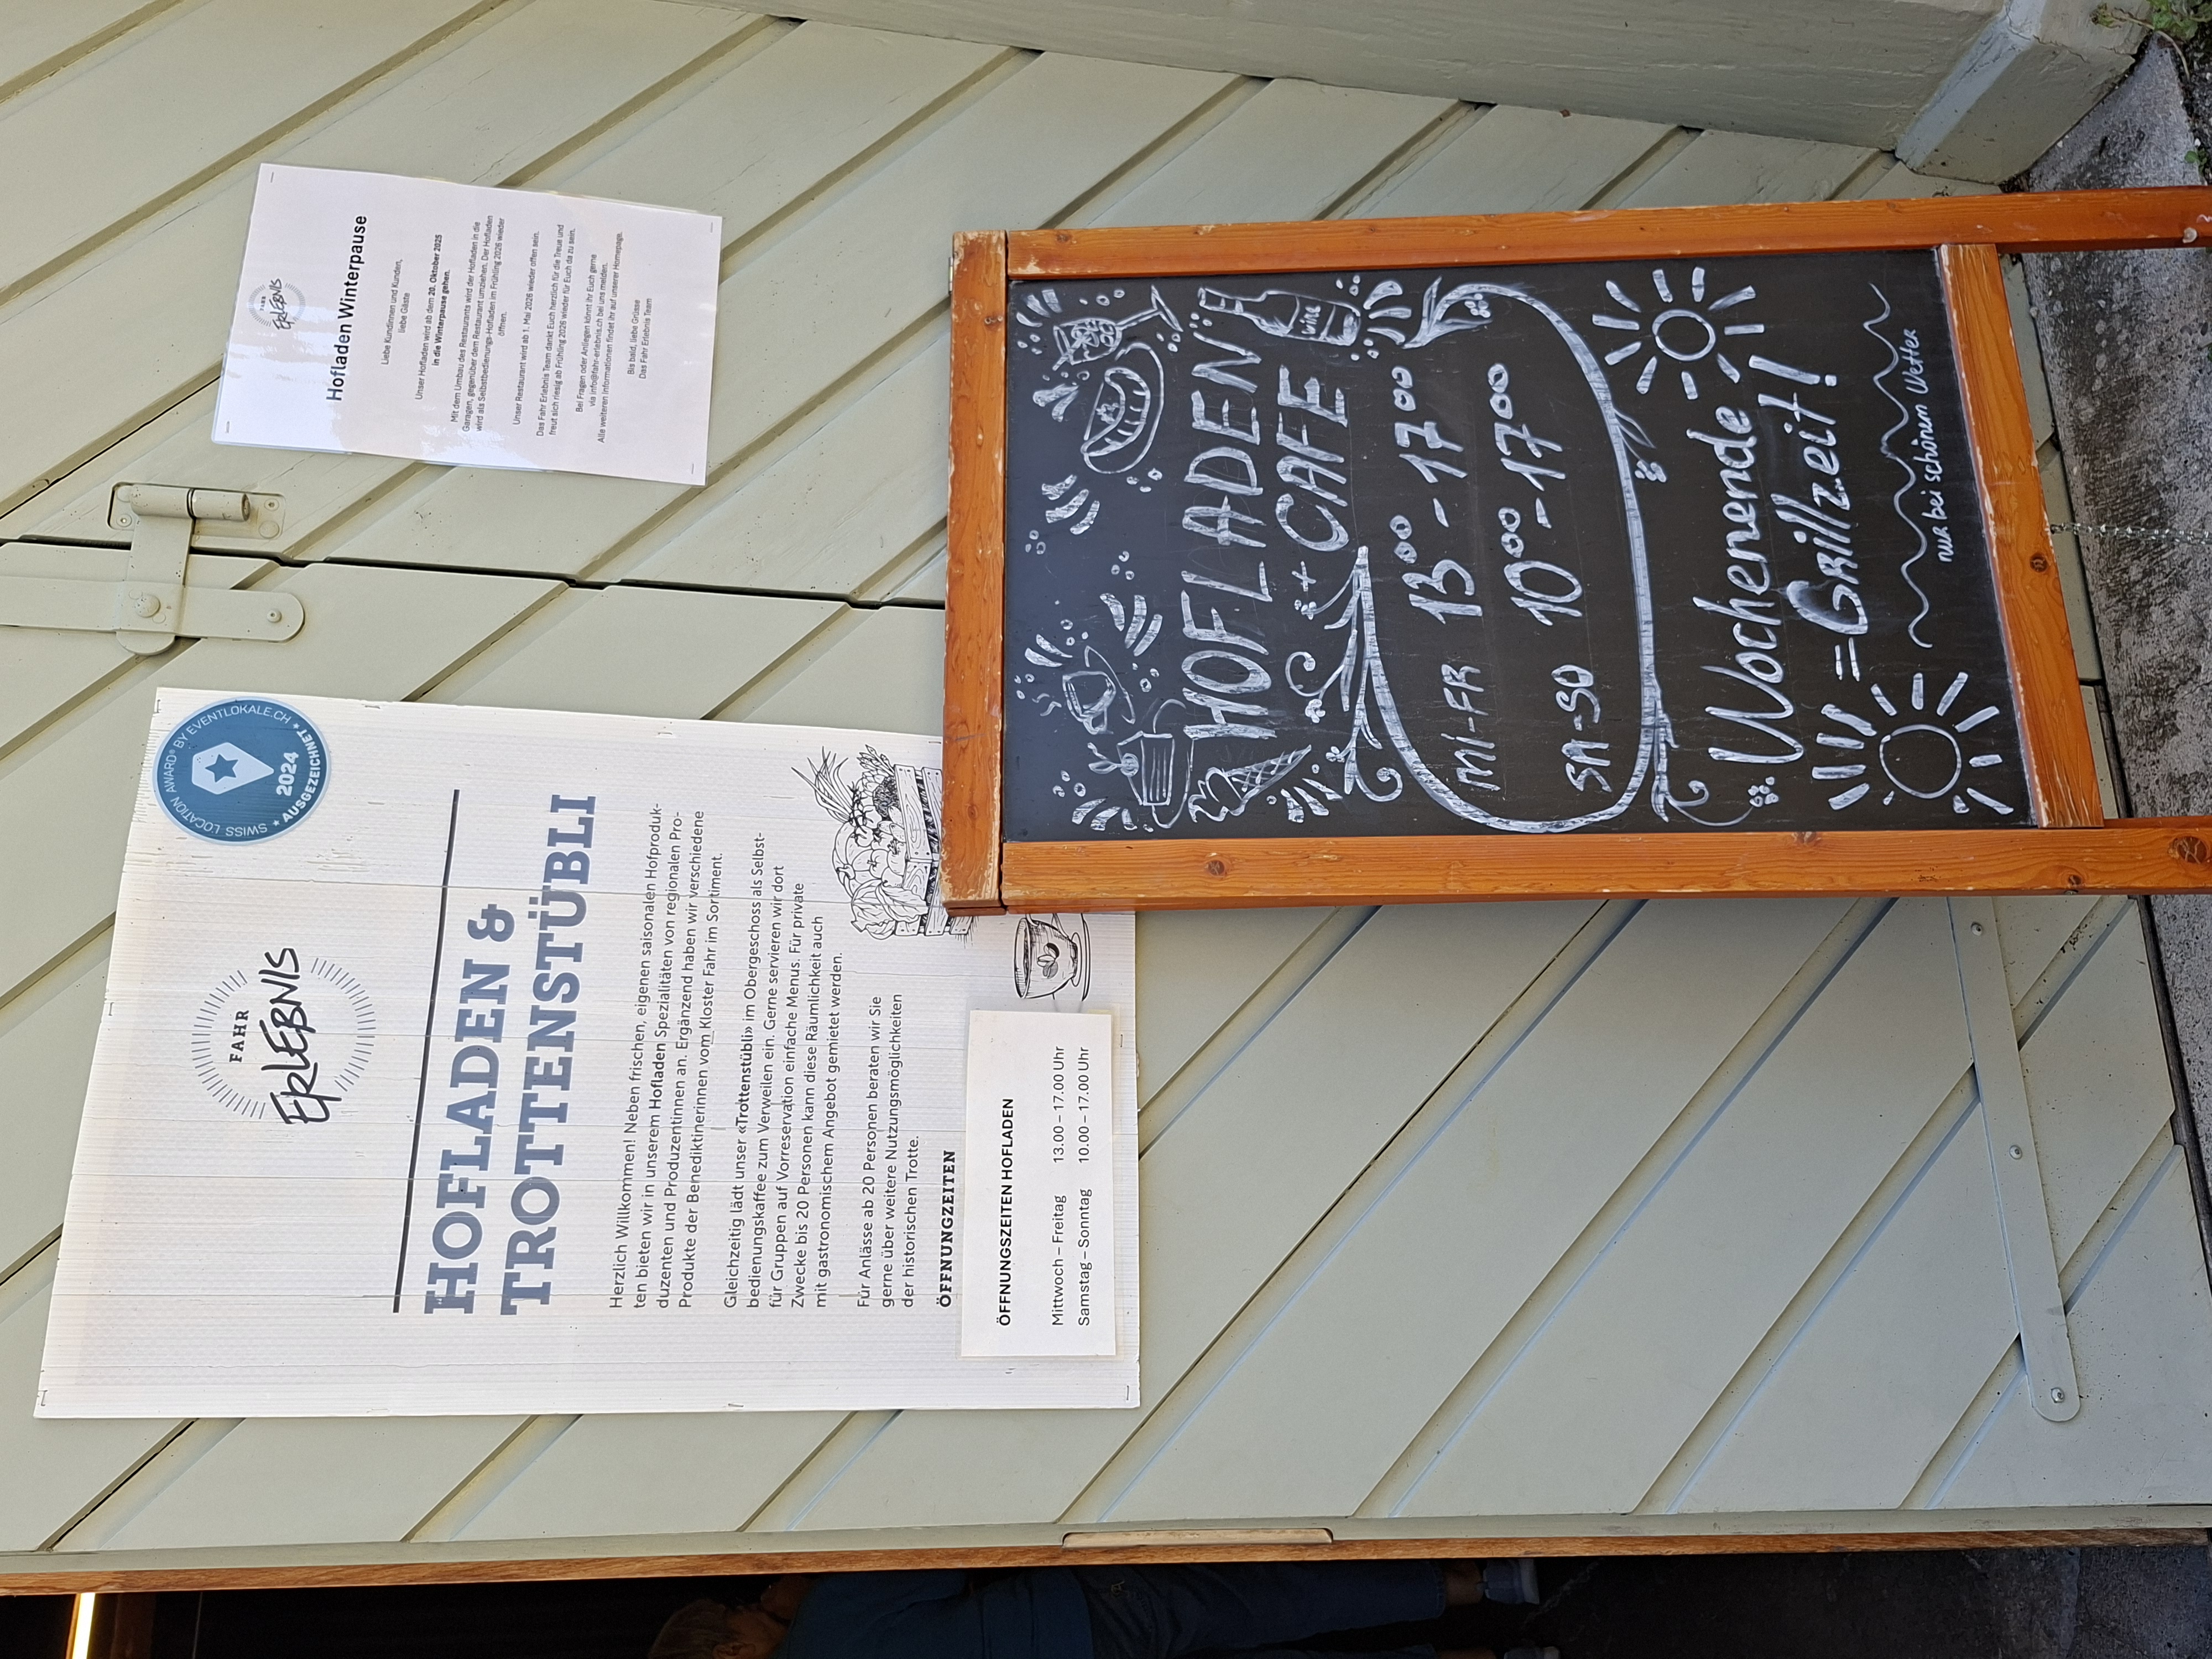 SWISS LOCATION AWARD® BY EVENTLOKALE.CH
2024
★ AUSGEZEICHNET ★
FAHR
ERLEBNIS
HOFLADEN &
TROTTENSTÜBLI
Herzlich Willkommen! Neben frischen, eigenen saisonalen Hofproduk-
ten bieten wir in unserem Hofladen Spezialitäten von regionalen Pro-
duzenten und Produzentinnen an. Ergänzend haben wir verschiedene
Produkte der Benediktinerinnen vom Kloster Fahr im Sortiment.
Gleichzeitig lädt unser «Trottenstübli» im Obergeschoss als Selbst-
bedienungskaffee zum Verweilen ein. Gerne servieren wir dort
für Gruppen auf Vorreservation einfache Menus. Für private
Zwecke bis 20 Personen kann diese Räumlichkeit auch
mit gastronomischem Angebot gemietet werden.
Für Anlässe ab 20 Personen beraten wir Sie
gerne über weitere Nutzungsmöglichkeiten
der historischen Trotte.
ÖFFNUNGZEITEN
ÖFFNUNGSZEITEN HOFLADEN
Mittwoch – Freitag 13.00 – 17.00 Uhr
Samstag – Sonntag 10.00 – 17.00 Uhr
FAHR
ERLEBNIS
Hofladen Winterpause
Liebe Kundinnen und Kunden,
liebe Gäste
Unser Hofladen wird ab dem 20. Oktober 2025
in die Winterpause gehen.
Mit dem Umbau des Restaurants wird der Hofladen in die
Garagen, gegenüber dem Restaurant umziehen. Der Hofladen
wird als Selbstbedienungs-Hofladen im Frühling 2026 wieder
öffnen.
Unser Restaurant wird ab 1. Mai 2026 wieder offen sein.
Das Fahr Erlebnis Team dankt Euch herzlich für die Treue und
freut sich riesig ab Frühling 2026 wieder für Euch da zu sein.
Bei Fragen oder Anliegen könnt ihr Euch gerne
via info@fahr-erlebnis.ch bei uns melden.
Alle weiteren Informationen findet ihr auf unserer Homepage.
Bis bald, liebe Grüsse
Das Fahr Erlebnis Team
wine
HOFLADEN
+ CAFE
Mi-FR 13⁰⁰ - 17⁰⁰
SA-SO 10⁰⁰ - 17⁰⁰
Wochenende
= Grillzeit!
nur bei schönem Wetter